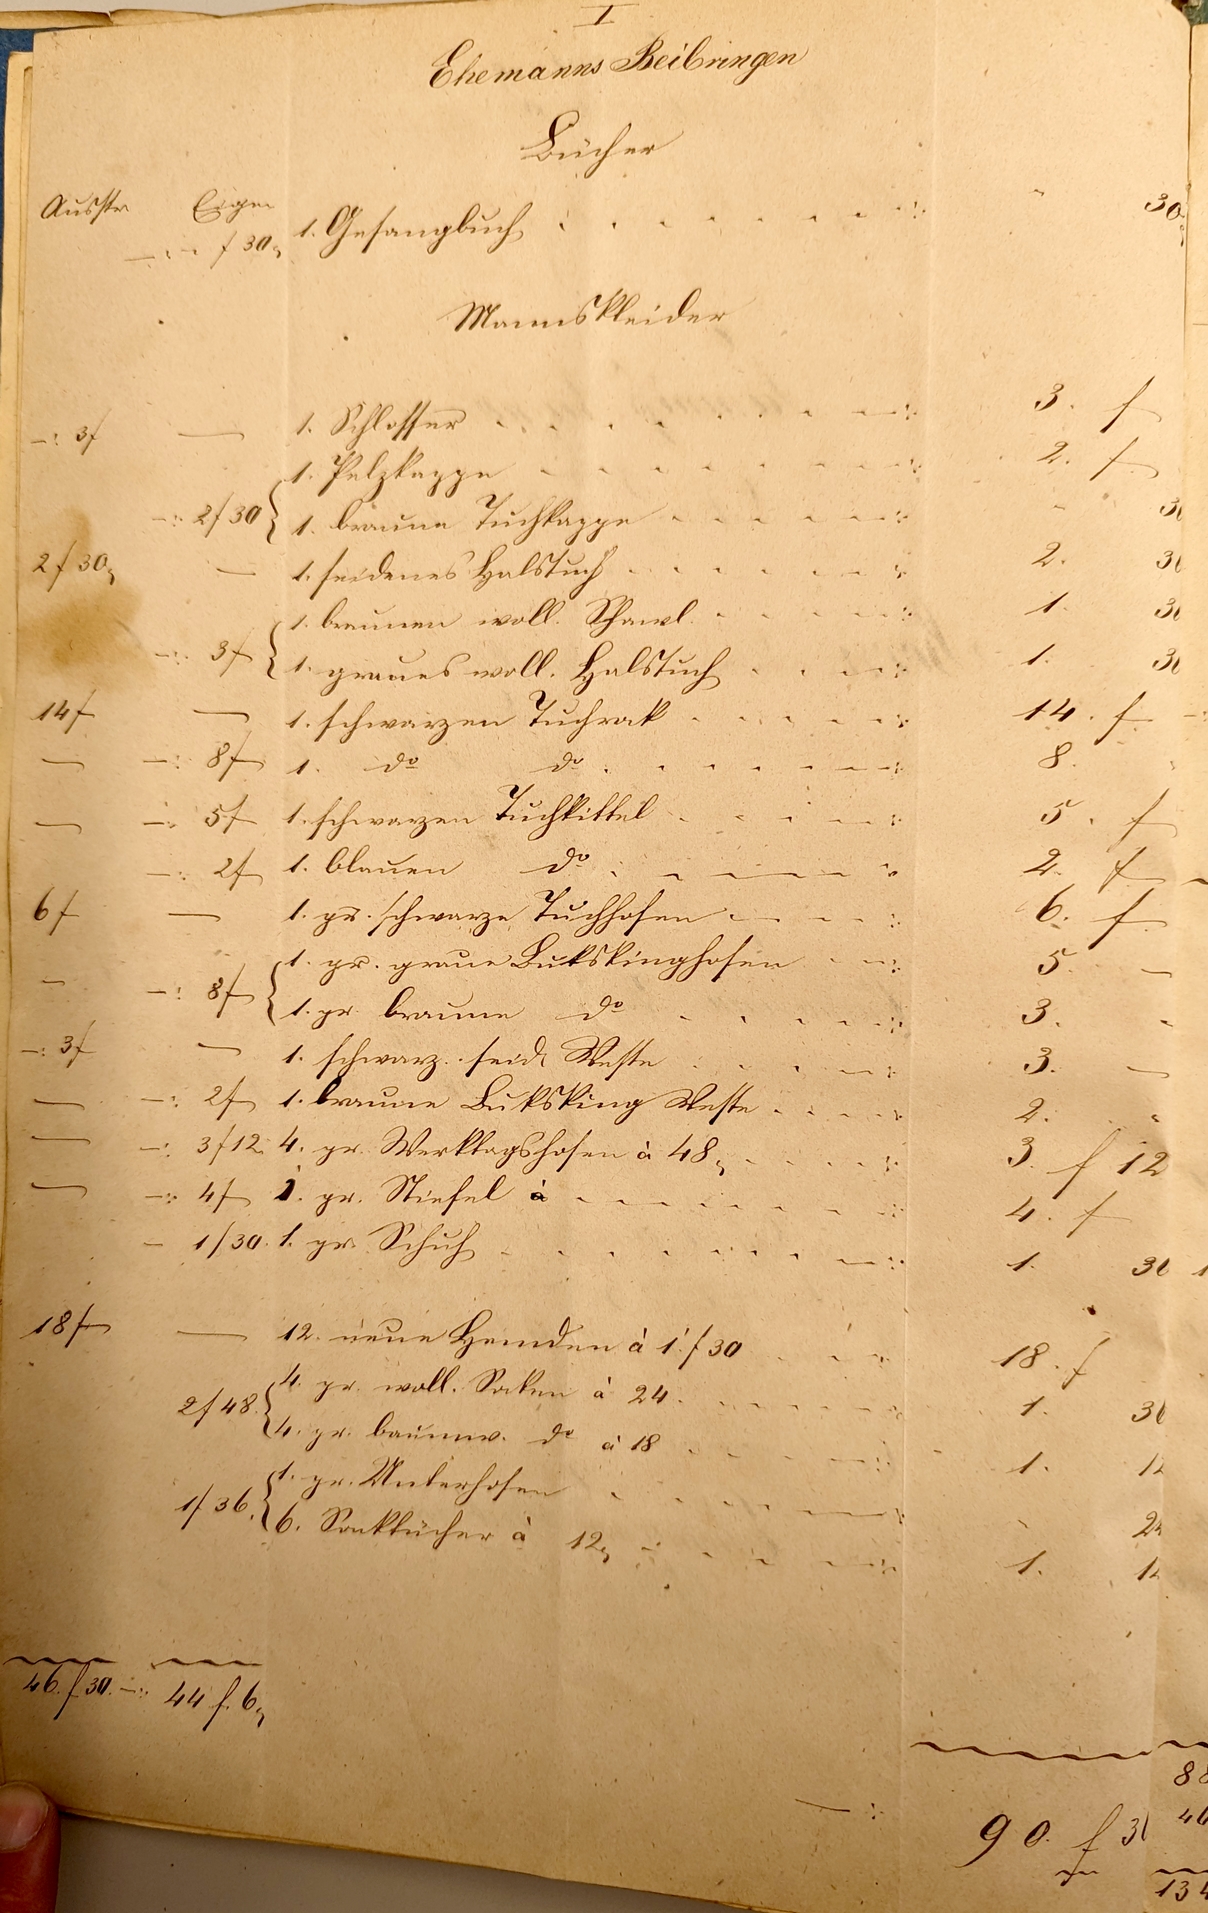 I
Ehemanns Beibringen
Bücher
Ausstr Eigen
f 30 1. Gesangbuch 30
Mannskleider
3f — 1. Schlosser 3. f
1. Pelzkappe 2. f
2f30 { 1. braune Tuchkappe 30
2f30 — 1. seidenes Halstuch 2. 30
1. braunen woll. Shawl 1. 30
3f { 1. graues woll. Halstuch 1. 30
14f — 1. schwarzen Tuchrok 14. f
— 8f 1. do do 8.
— 5f 1. schwarzen Tuchkittel 5. f
2f 1. blauen do 2. f
6f — 1. pr. schwarze Tuchhosen 6. f
1. pr. graue Bukskinghosen 5. —
— 8f { 1. pr. braune do 3.
3f — 1. schwarz. seid. Weste 3. —
— 2f 1. braune Buksking Weste 2.
— 3f12. 4. pr. Werktagshosen à 48 3. f 12
— 4f 1. pr. Stiefel à 4. f
1f30. 1. pr. Schuh 1. 30
18f — 12. neue Hemden à 1.f30 18. f
4. pr. woll. Soken à 24. 1. 36
2f48. { 4. pr. baumw. do à 18 1. 12
1. pr. Unterhosen 24
1f36. { 6. Saktücher à 12 1. 12
46.f30. 44 f. 6
90. f 36